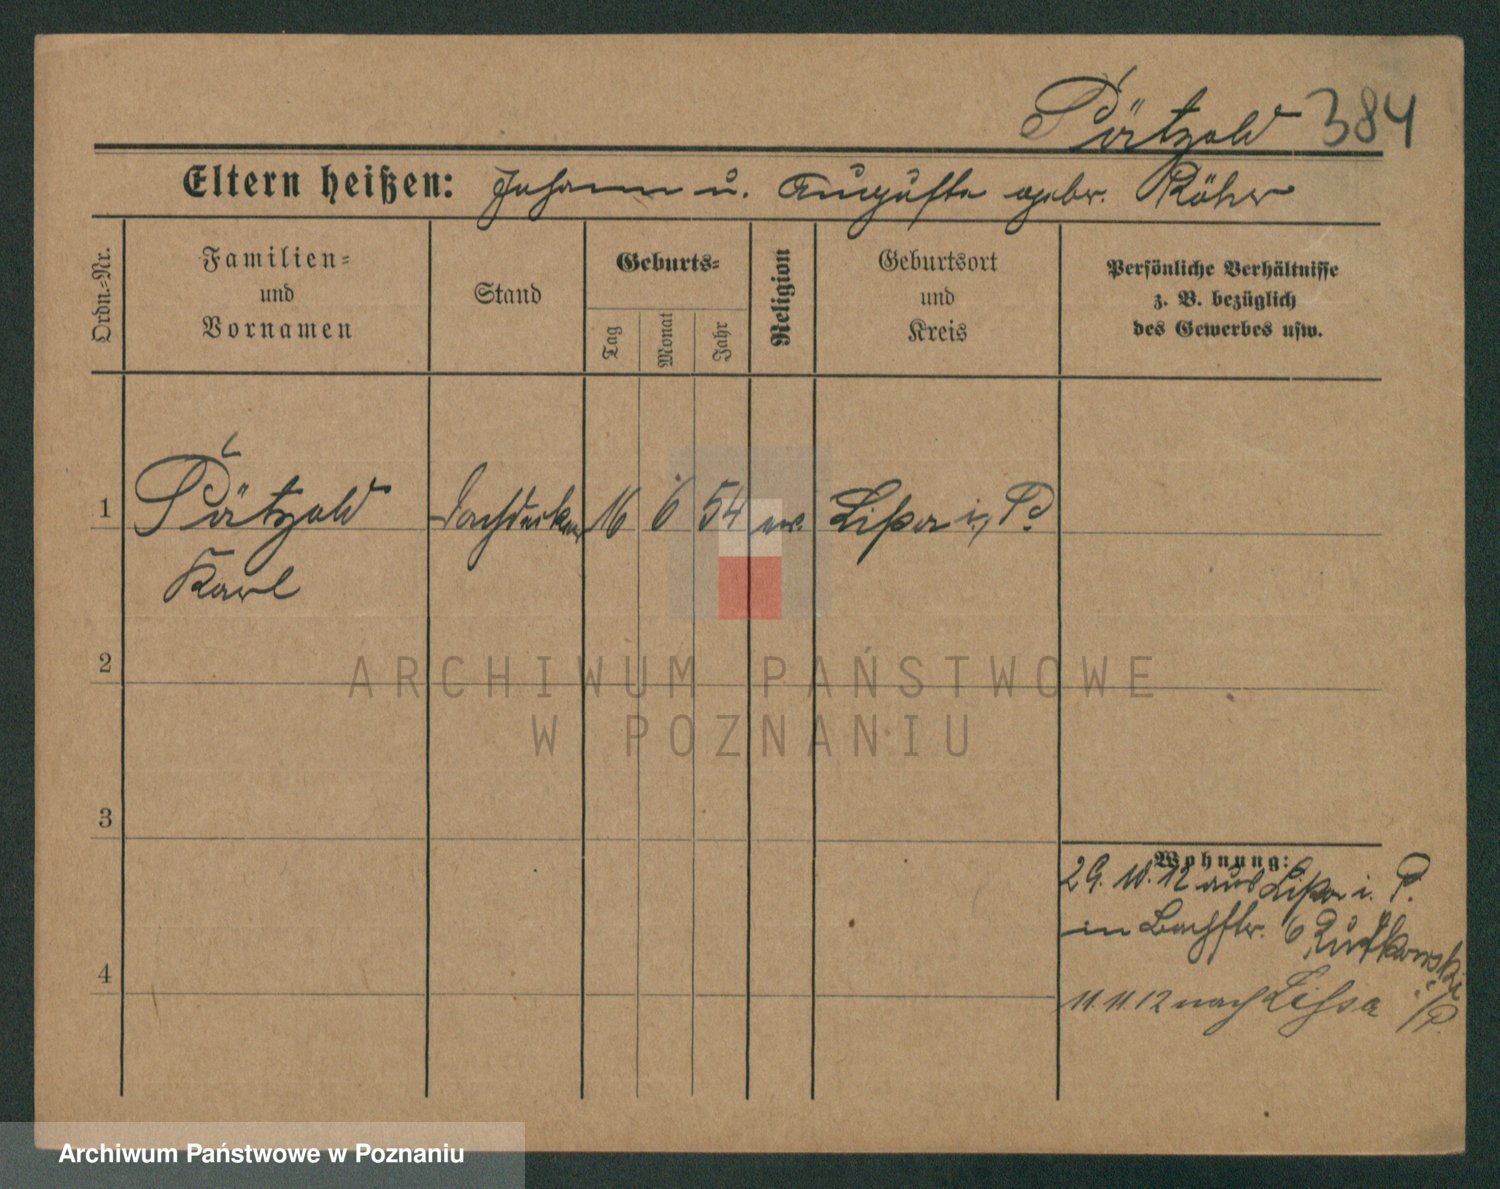 Pätzold 384
Eltern heißen: Johann u. Auguste gebr. Röher
Ordn.-Nr.
Familien-
und
Vornamen
Stand
Geburts-
Tag
Monat
Jahr
Religion
Geburtsort
und
Kreis
Persönliche Verhältnisse
z. B. bezüglich
des Gewerbes usw.
1 Pätzold Dachdecker 16 6 54 ev. Lissa i. P.
Karl
2
ARCHIWUM PAŃSTWOWE
W POZNANIU
3
Wohnung:
29. 10. 12 aus Lissa i. P.
in Bachstr. 6 Rutkowski
4
11. 11. 12 nach Lissa i/P.
Archiwum Państwowe w Poznaniu